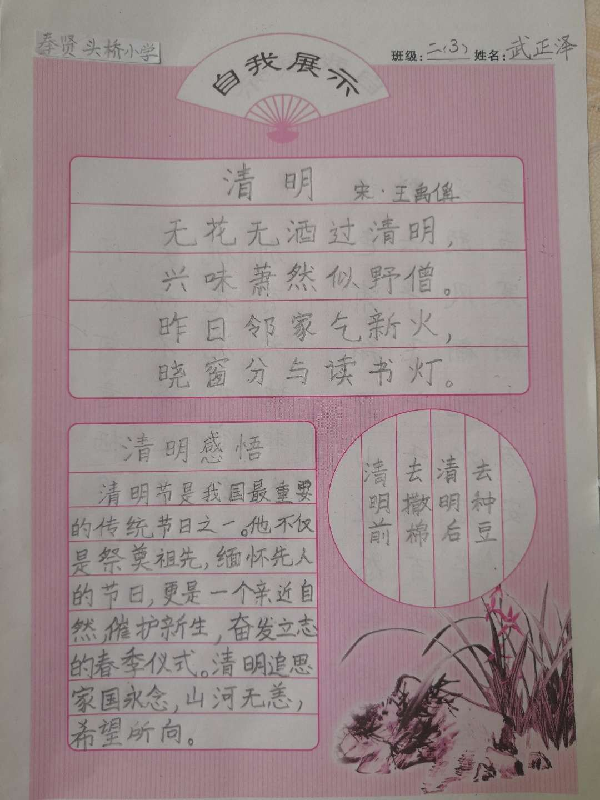 奉贤头桥小学
班级:二(3) 姓名:武正泽
自我展示
清明
宋·王禹偁
无花无酒过清明,
兴味萧然似野僧。
昨日邻家气新火,
晓窗分与读书灯。
清明感悟
清明节是我国最重要
的传统节日之一。他不仅
是祭奠祖先,缅怀先人
的节日,更是一个亲近自
然,催护新生,奋发立志
的春季仪式。清明追思
家国永念,山河无恙,
希望所向。
清明前
去撒棉
清明后
去种豆